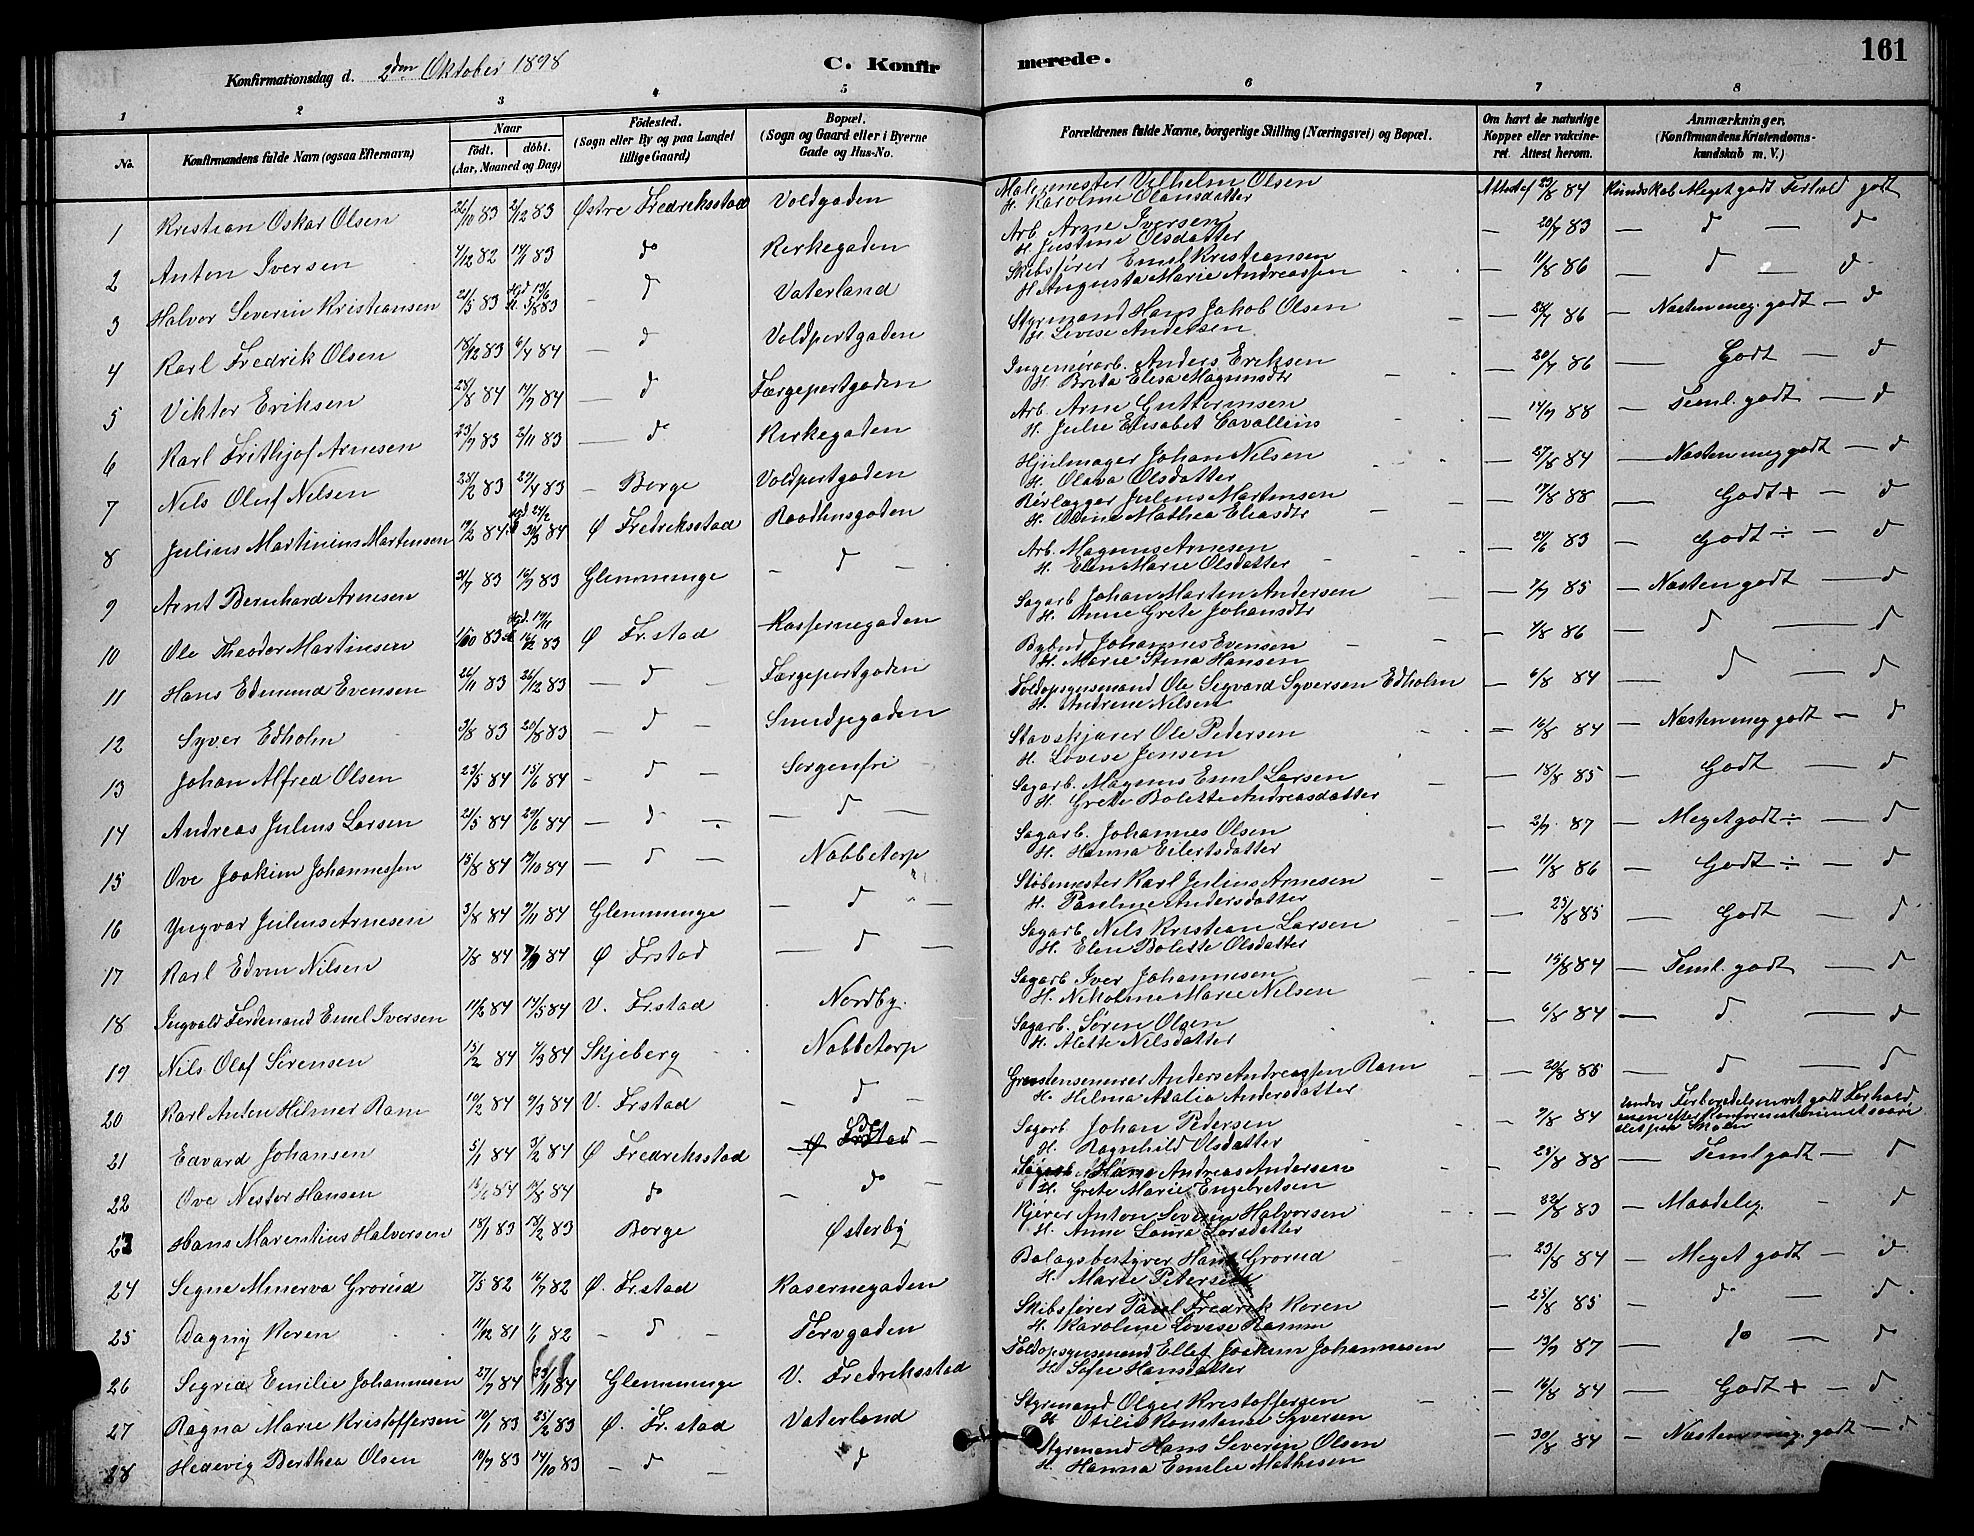 161
Konfirmationsdag d. 2den Oktober 1898
C. Konfirmerede.
1 2 3 4 5 6 7 8
No.
Konfirmandens fulde Navn (ogsaa Efternavn)
Naar
födt. döbt.
(Aar, Maaned og Dag)
Födested.
(Sogn eller By og paa Landet
tillige Gaard)
Bopæl.
(Sogn og Gaard eller i Byerne
Gade og Hus-No.
Forældrenes fulde Navne, borgerlige Stilling (Næringsvei) og Bopæl.
Om havt de naturlige
Kopper eller vakcine-
ret. Attest herom.
Anmærkninger.
(Konfirmandens Kristendoms-
kundskab m. V.)
1 Kristian Oskar Olsen 26/10 83 2/12 83 Østre Fredriksstad Voldgaden Malermester Vilhelm Olsen
H. Karoline Olausdatter Attest af 23/8 84 Kundskab Meget godt Forhold godt
2 Anton Iversen 4/12 82 14/1 83 do Kirkegaden Arb. Arne Iversen
H. Justine Olsdatter — 20/7 83 — d — d
3 Halvor Severin Kristiansen 21/5 83 — d Vaterland Skibsfører Emil Kristiansen
H. Augusta Marie Andreassen — 11/8 86 — d — d
4 Karl Fredrik Olsen 18/12 83 6/4 84 — d Voldportgaden Styrmand Hans Jakob Olsen
H. Lovise Andersen — 28/7 86 — Næsten meg. godt — d
5 Viktor Eriksen 28/8 84 14/9 84 — d Færgeportgaden Ingeniørarb. Anders Eriksen
H. Brita Elisa Magnusdtr — 20/7 86 — Godt — d
6 Karl Frithjof Arnesen 23/9 83 2/11 83 — d Kirkegaden Arb. Arne Guttormsen
H. Julie Elisabet Cavallius — 14/9 88 — Teml. godt — d
7 Nils Oluf Nilsen 25/2 83 29/4 83 — Borge Voldportgaden Hjulmager Johan Nilsen
H. Olava Olsdatter — 27/8 84 — Næsten meg godt — d
8 Julius Martinius Martensen 19/2 84 Ø Fredriksstad Raadhusgaden Rørlægger Julius Martensen
H. Oline Mathea Eliasdtr — 17/8 88 — Godt + — d
9 Arnt Bernhard Arnesen 21/7 83 16/9 83 Glemminge — d — Arb. Magnus Arnesen
H. Elen Marie Olsdatter — 29/6 83 — Godt ÷ — d
10 Ole Theodor Martinsen 1/10 83 Ø Fr.stad Kassernegaden Sagarb Johan Martin Andersen
H. Anne Grete Johansdtr — 7/7 85 — Næsten godt — d
11 Hans Edmund Evensen 26/11 83 26/12 83 — d — Færgeportgaden Bybud Johannes Evensen
H. Marie Stina Hansen — 7/8 86 — d — d
12 Syver Edholm 3/8 83 20/8 83 — d — Smedjegaden Toldopsynsmand Ole Segvard Syversen Edholm
H. Andrine Nilsen — 6/8 84 — d — d
13 Johan Alfred Olsen 23/5 84 15/6 84 — d — Sorgenfri Stavskjærer Ole Pedersen
H. Lovise Jensen — 16/8 84 — Næsten meg godt — d
14 Andreas Julius Larsen 21/5 84 29/6 84 — d — — d — Sagarb. Magnus Emil Larsen
H. Grete Bolette Andreasdatter — 18/8 85 — Godt — d
15 Ove Joakim Johannessen 15/8 84 19/10 84 — d — Nabbetorp Sagarb. Johannes Olsen
H. Hanna Eilertsdatter — 2/7 87 — Meget godt ÷ — d
16 Yngvar Julius Arnesen 3/8 84 9/11 84 Glemminge — d — Støbemester Karl Julius Arnesen
H. Pauline Andersdatter — 11/8 86 — Godt ÷ — d
17 Karl Edvin Nilsen 7/8 84 84 Ø Frstad — d — Sagarb Nils Kristian Larsen
H. Elen Bolette Olsdatter — 23/8 85 — Godt — d
18 Ingvald Ferdinand Emil Iversen 84 17/5 84 V. Fr.stad Nordby. Sagarb Iver Johannesen
H. Nikoline Marie Nilsen — 15/8 84 — Teml. godt — d
19 Nils Olaf Sørensen 15/2 84 84 Skjeberg Nabbetorp Sagarb. Søren Olsen
H. Alette Nilsdatter — 6/8 84 — d — d
20 Karl Anton Hilmer Ram 10/2 84 9/3 84 V. Frstad — d Anders Andreassen Ram
H. Helma Atalia Andersdatter — 20/8 88 — d — d
21 Edvard Johansen 5/1 84 3/2 84 Ø Fredriksstad Ø Frstad — Sagarb Johan Pedersen
H. Ragnhild Olsdatter — 9/8 84 Under Forberedelsen ret godt Forhold,
22 Ove Nestor Hansen 84 84 do — do — Hans Andreas Andersen
H. Grete Marie Engebretsen — 23/8 88 — Teml godt — d
23 Hans Marentius Halvorsen 18/1 83 18/2 83 Borge Østerby Kjører Anton Severin Halvorsen
H. Anne Laura Larsdatter — 22/8 83 — Maadelig — d
24 Segne Minerva Grorud 7/5 82 16/7 82 Ø. Fr.stad Kasernegaden Bolagsbestyrer Hans Grorud
H. Marie Petersen — 23/8 84 — Meget godt — d
25 Dagny Koren 11/12 81 1/1 82 — d — Torvgaden Skibsfører Paul Fredrik Koren
H. Karoline Lovise Ramm — 25/8 85 — do — d
26 Segrid Emilie Johannesen 27/9 84 23/11 84 Glemminge V. Fredriksstad Toldopsynsmand Ellef Joakim Johannesen
H. Sofie Hansdatter — 13/9 87 — do — d
27 Ragna Marie Kristoffersen 10/1 83 25/2 83 Ø. Fr.stad Vaterland Styrmand Olger Kristoffersen
H. Otilie Konstanse Syversen — 16/8 84 — Godt + — d
28 Hedevig Berthea Olsen 19/9 83 14/10 83 — d — d Styrmand Hans Severin Olsen
H. Hanna Emilie Mathisen — 30/8 84 — Næsten meg. godt — d